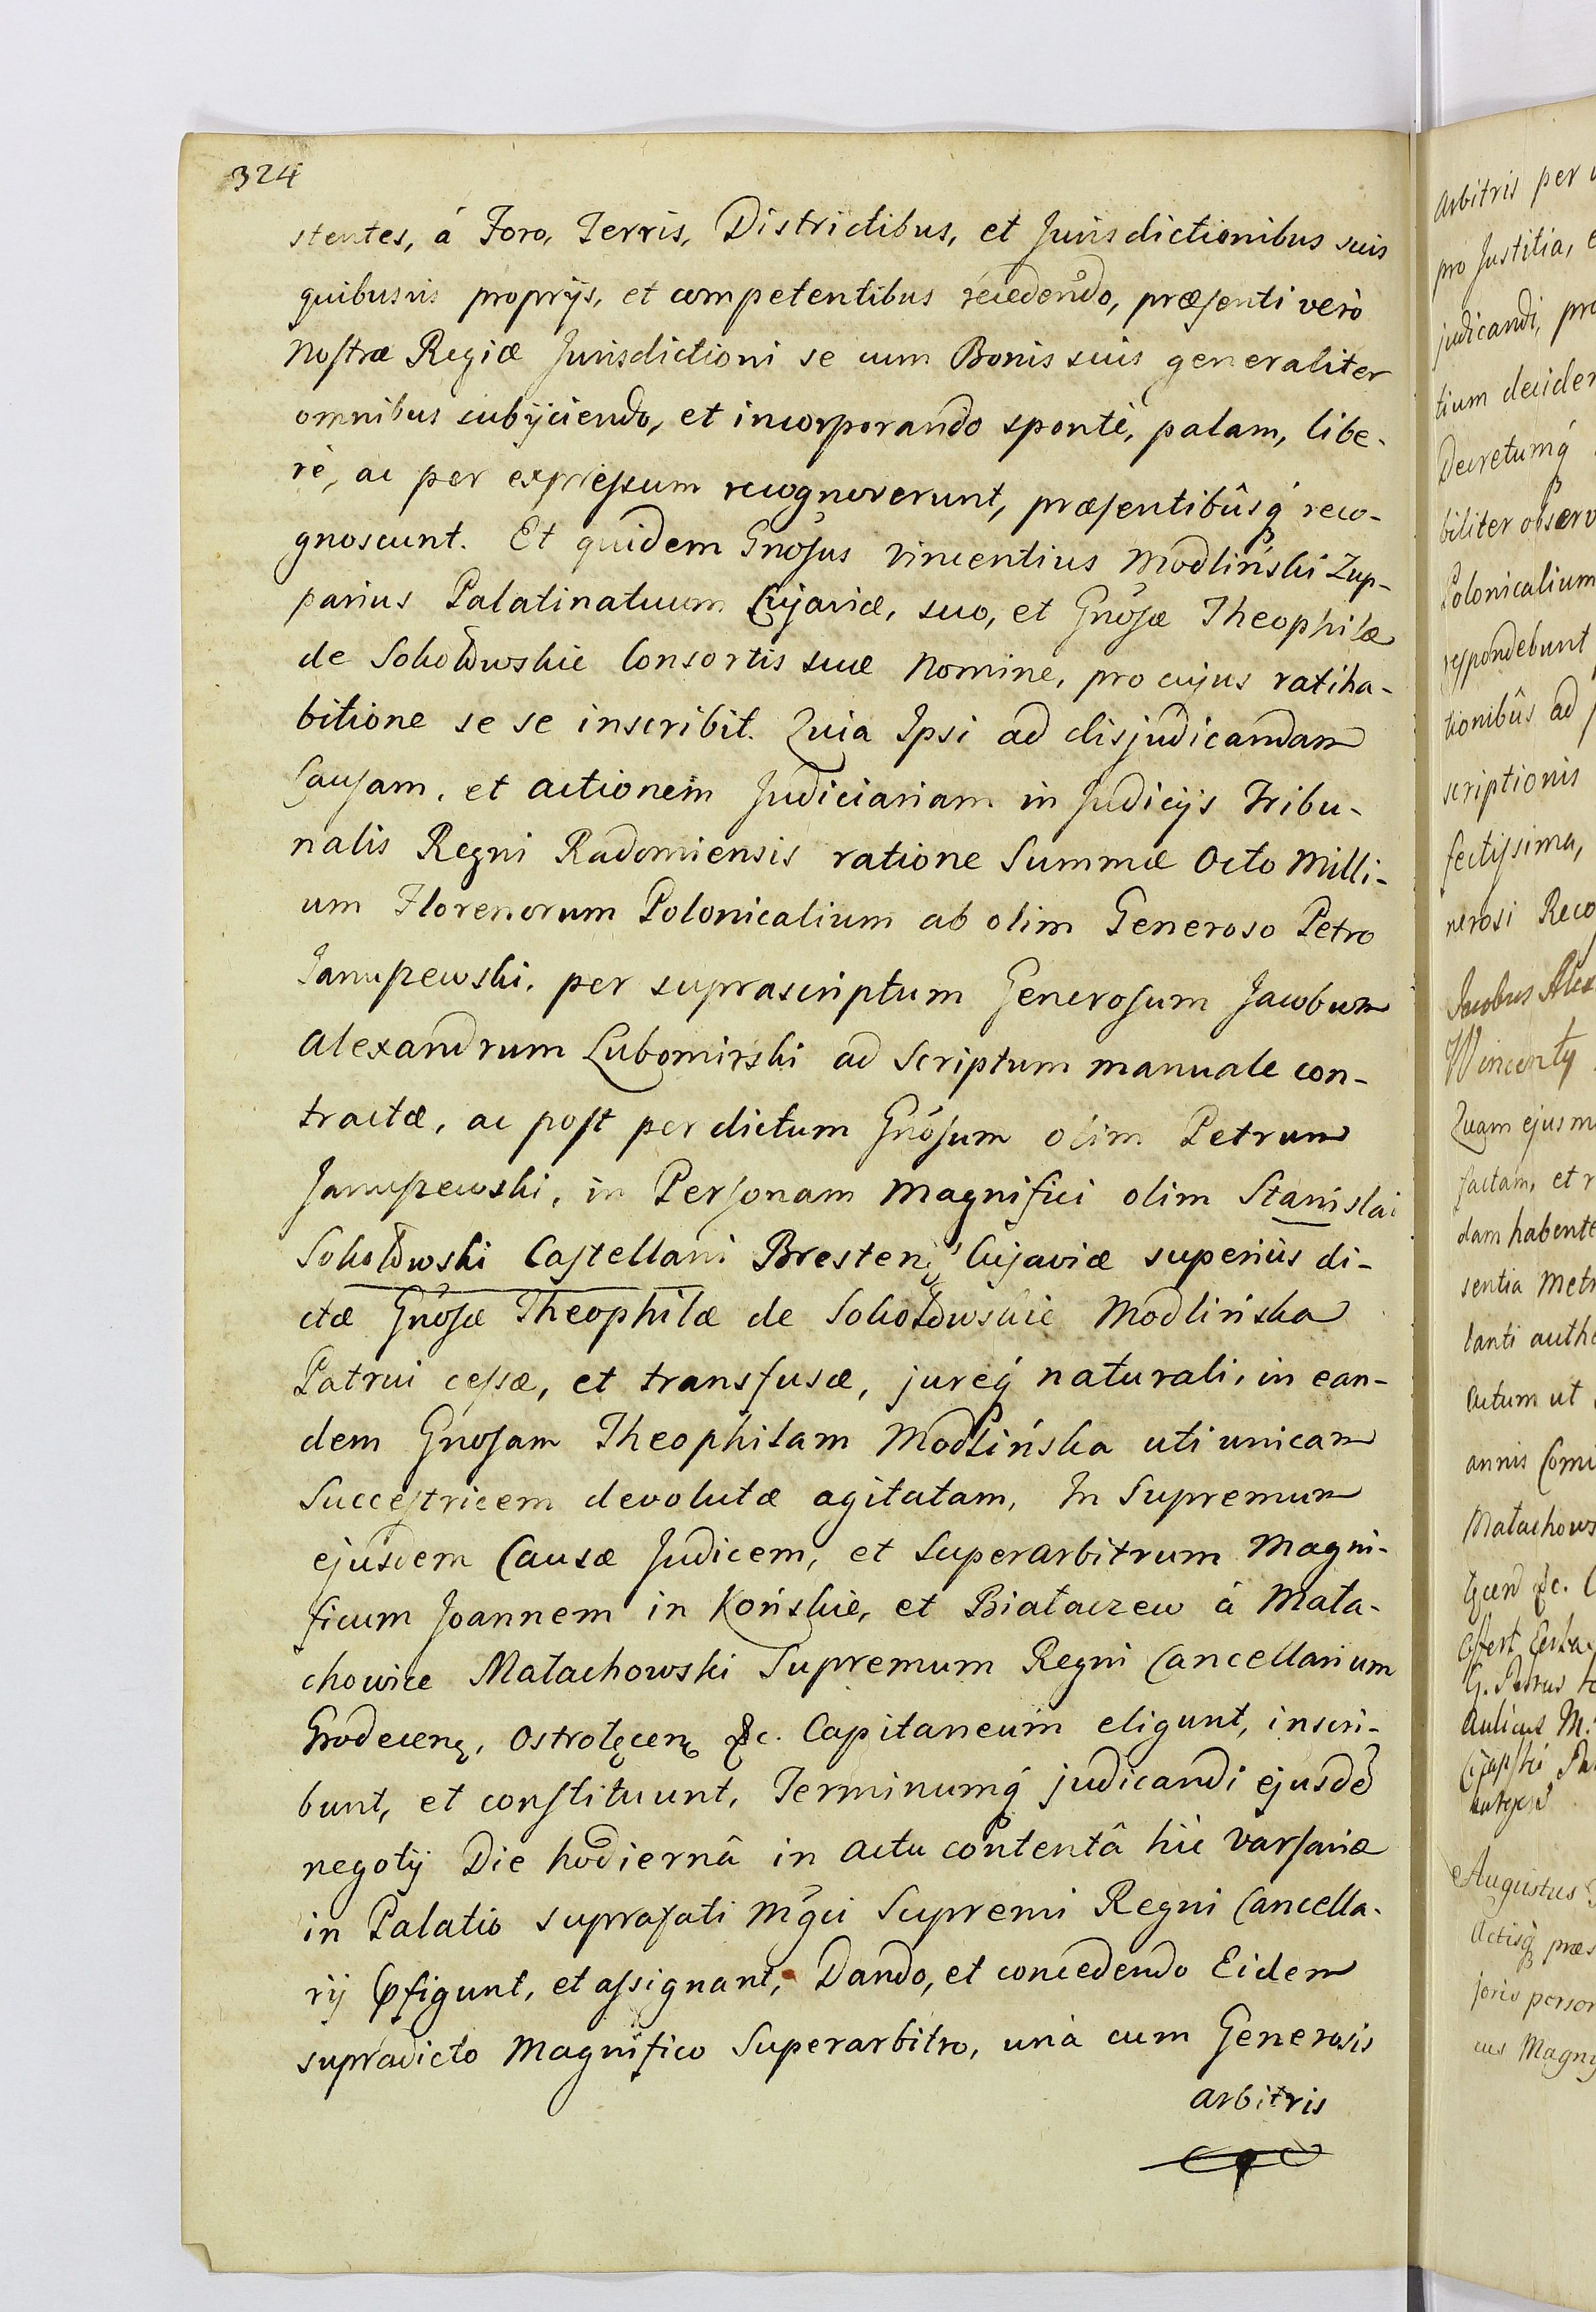 324
stentes, á Foro, Terris, Districtibus, et Jurisdictionibus suis
quibusvis proprijs, et competentibus recedendo, præsenti verò
Nostræ Regiæ Jurisdictioni se cum Bonis suis generaliter
omnibus subijciendo, et incorporando spontè, palam, libe-
rè, ac per expressum recognoverunt, præsentibûsq́ reco-
gnoscunt. Et quidem Gnõsus Vincentius Modliński Zup-
parius Palatinatuum Cujaviæ, suo, et Gnõsæ Theophilæ
de Sokołowskie Consortis suæ Nomine, pro cujus ratiha-
bitione se se inscribit. Quia Ipsi ad disjudicandam
Causam, et actionem Judiciariam in Judicijs Tribu-
nalis Regni Radomiensis ratione Summæ Octo Milli-
um Florenorum Polonicalium ab olim Generoso Petro
Januszewski, per suprascriptum Generosum Jacobum
Alexandrum Lubomirski ad Scriptum manuale con-
tractæ, ac post per dictum Gnõsum olim Petrum
Januszewski, in Personam Magnifici olim Stanislai
Sokołowski Castellani Bresten Cujaviæ superiùs di-
ctæ Gnõsæ Theophilæ de Sokołowskie Modlińska
Patrui cessæ, et transfusæ, jureq́ naturali, in ean-
dem Gnosam Theophilam Modlińska uti unicam
Successtricem devolutæ agitatam, In Supremum
ejusdem Causæ Judicem, et Superarbitrum Magni-
ficum Joannem in Końskie, et Białaczew á Mała-
chowice Małachowski Supremum Regni Cancellarium
Grodecen, Ostrołęcen &c. Capitaneum eligunt, inscri-
bunt, et constituunt, Terminumq́ judicandi ejusdẽ
negotij Die hodiernâ in Actu contentâ hic Varsaviæ
in Palatio suprafati Mgci Supremi Regni Cancella-
rij pfigunt, et assignant, Dando, et concedendo Eidem
supradicto Magnifico Superarbitro, unà cum Generosis
arbitris
arbitris per
pro Justitia,
judicandi,
tium
Decretumq́
biliter
Polonicalium
respondebunt
tionibûs ad
scriptionis
fectissima,
nerosi
Jacobus
Wincenty
Quam
factam, et
dam
sentia
tanti
Actum ut
annis
&c.
G. Petrus
Aulicus
Augustus
Actisq́